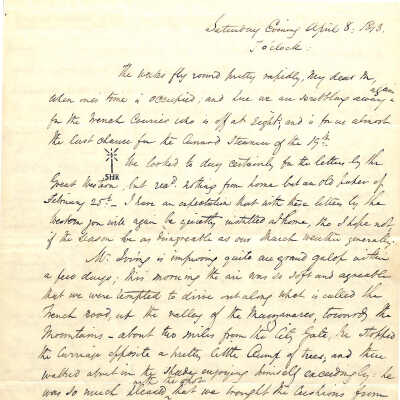 Saturday Evening April 8: 1843.
7 o'clock:
The weeks fly round pretty rapidly, my dear M,
when one's time is occupied; and here we are scribbling away again
for the French Courier who is off at Eight; and is for us almost
the last chance for the Cunard Steamer of the 19th.
We looked to day certainly for the letters by the
Great Western, but recd. nothing from home but an old paper of
February 25th - I have an expectation that with these letters by the
Western you will again be quietly installed at home, tho' I hope not
if the Season be as disagreeable as our March weather generally.
Mr. Irving is improving quite au grand galop within
a few days; this morning the air was so soft and agreeable
that we were tempted to drive out along what is called the
French road, up the valley of the Manzanares, towards the
Mountains - about two miles from the City Gate, he stopped
the Carriage opposite a pretty little Clump of trees, and then
walked about in the shade enjoying himself exceedingly: he
was so much pleased with the spot that we brought the Cushions from
SHK